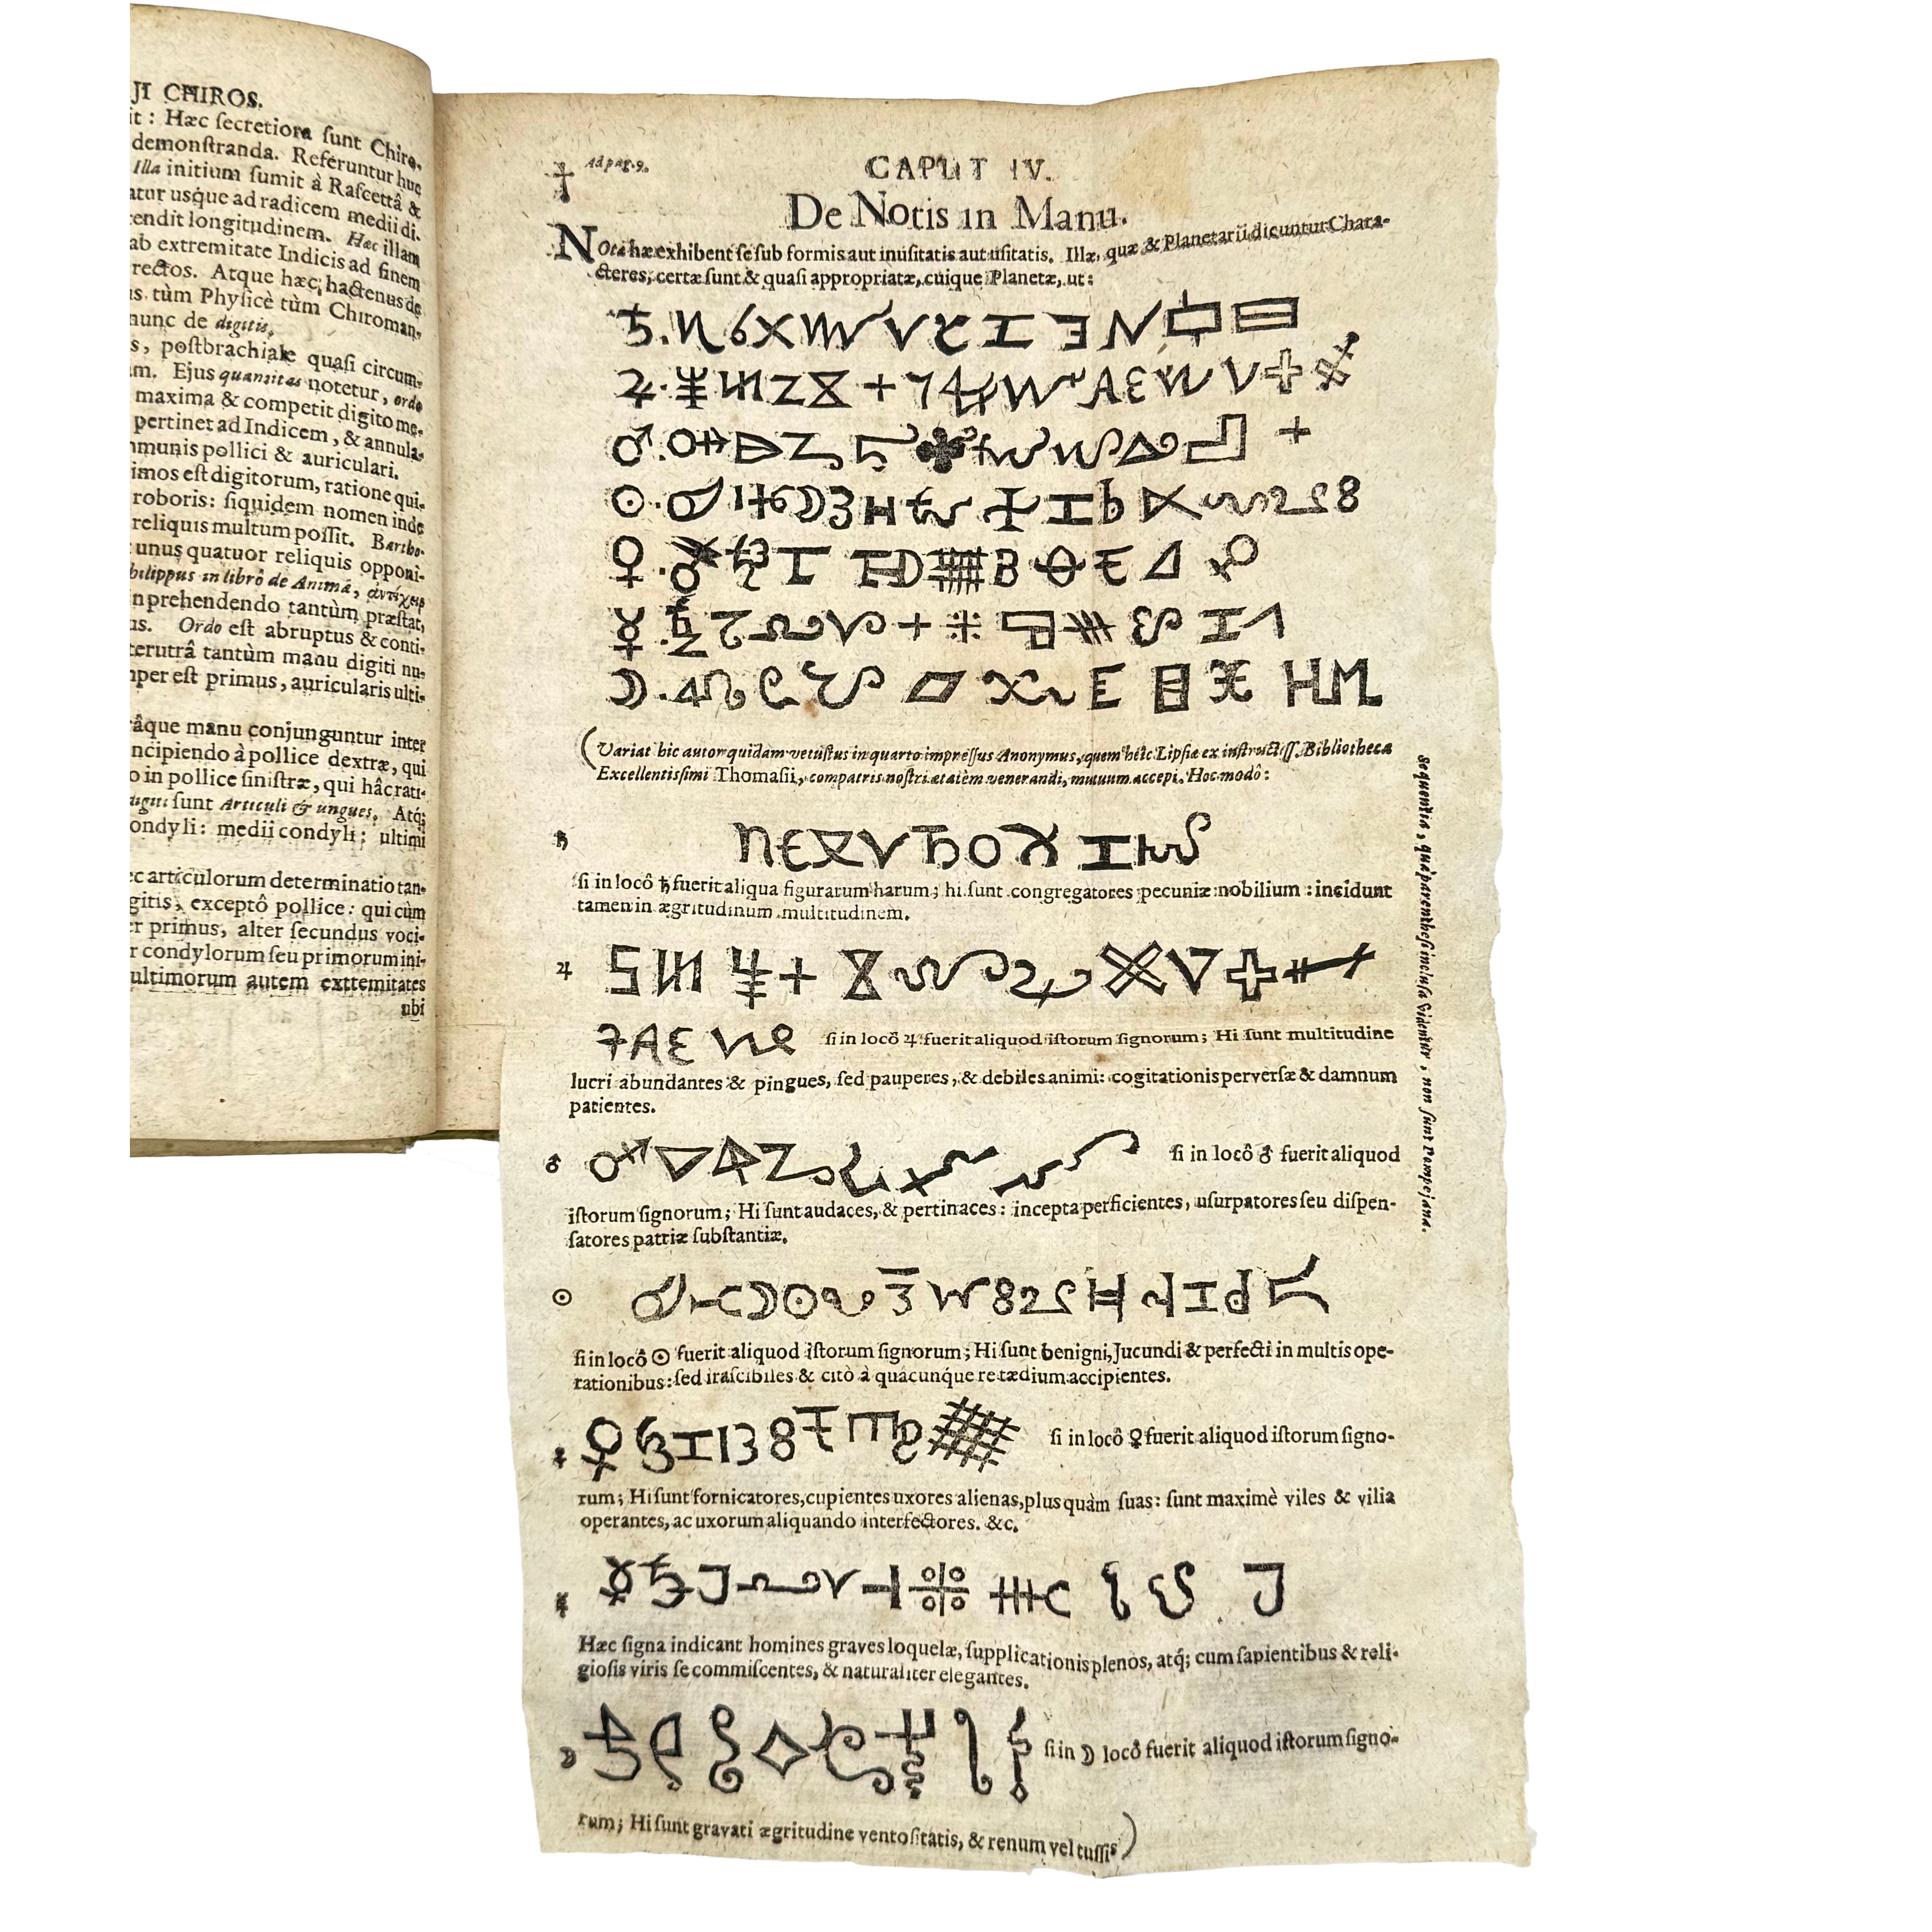 JI CHIROS.
it : Hæc ſecretiora ſunt Chiro-
demonſtranda. Referuntur huc
Illa initium ſumit à Raſcettâ &
atur uſque ad radicem medii di-
tendit longitudinem. Hæc illam
ab extremitate Indicis ad finem
rectos. Atque hæc, hactenus de
us tùm Phyſicè tùm Chiroman-
nunc de digitis.
s, poſtbrachiale quaſi circum-
m. Ejus quantitas notetur, ordo
maxima & competit digito me-
pertinet ad Indicem, & annula-
mmunis pollici & auriculari.
imos eſt digitorum, ratione qui-
roboris: ſiquidem nomen inde
reliquis multum poſſit. Bartho-
unus quatuor reliquis opponi-
hilippus in librô de Animâ, ἀντίχειρ
n prehendendo tantùm præſtat,
us. Ordo eſt abruptus & conti-
terutrâ tantùm manu digiti nu-
per eſt primus, auricularis ulti-
râque manu conjunguntur inter
ncipiendo à pollice dextræ, qui
o in pollice ſiniſtræ, qui hâc rati-
digiti ſunt Articuli & ungues. Atq;
ondyli: medii condyli: ultimi
ec articulorum determinatio tan-
gitis, exceptô pollice: qui cùm
er primus, alter ſecundus voci-
r condylorum ſeu primorum ini-
ultimorum autem extremitates
ubi
† Ad pag. 9.
CAPUT IV.
De Notis in Manu.
Notæ hæ exhibent ſe ſub formis aut inuſitatis aut uſitatis. Illæ, quæ & Planetarii dicuntur Chara-
cteres, certæ ſunt & quaſi appropriatæ, cuique Planetæ, ut:
♄.
♃.
♂.
☉.
♀.
☿.
☽.
(Variat hic autor quidam vetuſtus in quarto impreſſus Anonymus, quem hîc Lipſiæ ex inſtructiſſ. Bibliotheca
Excellentiſſimi Thomaſii, compatris noſtri ætatem venerandi, mutuum accepi. Hoc modô:
♄
ſi in locô ♄ fuerit aliqua figurarum harum; hi ſunt congregatores pecuniæ nobilium: incidunt
tamen in ægritudinum multitudinem.
♃
ſi in locô ♃ fuerit aliquod iſtorum ſignorum; Hi ſunt multitudine
lucri abundantes & pingues, ſed pauperes, & debiles animi: cogitationis perverſæ & damnum
patientes.
♂ ſi in locô ♂ fuerit aliquod
iſtorum ſignorum; Hi ſunt audaces, & pertinaces: incepta perficientes, uſurpatores ſeu diſpen-
ſatores patriæ ſubſtantiæ.
☉
ſi in locô ☉ fuerit aliquod iſtorum ſignorum; Hi ſunt benigni, Jucundi & perfecti in multis ope-
rationibus: ſed iraſcibiles & citò à quâcunque re tædium accipientes.
♀ ſi in locô ♀ fuerit aliquod iſtorum ſigno-
rum; Hi ſunt fornicatores, cupientes uxores alienas, plus quàm ſuas: ſunt maximè viles & vilia
operantes, ac uxorum aliquando interfectores. &c.
☿
Hæc ſigna indicant homines graves loquelæ, ſupplicationis plenos, atq; cum ſapientibus & reli-
gioſis viris ſe commiſcentes, & naturaliter elegantes.
☽ ſi in ☽ locô fuerit aliquod iſtorum ſigno-
rum; Hi ſunt gravati ægritudine ventoſitatis, & renum vel tuſſis)
Sequentia, quæ parentheſi incluſa videntur, non ſunt Pompejana.